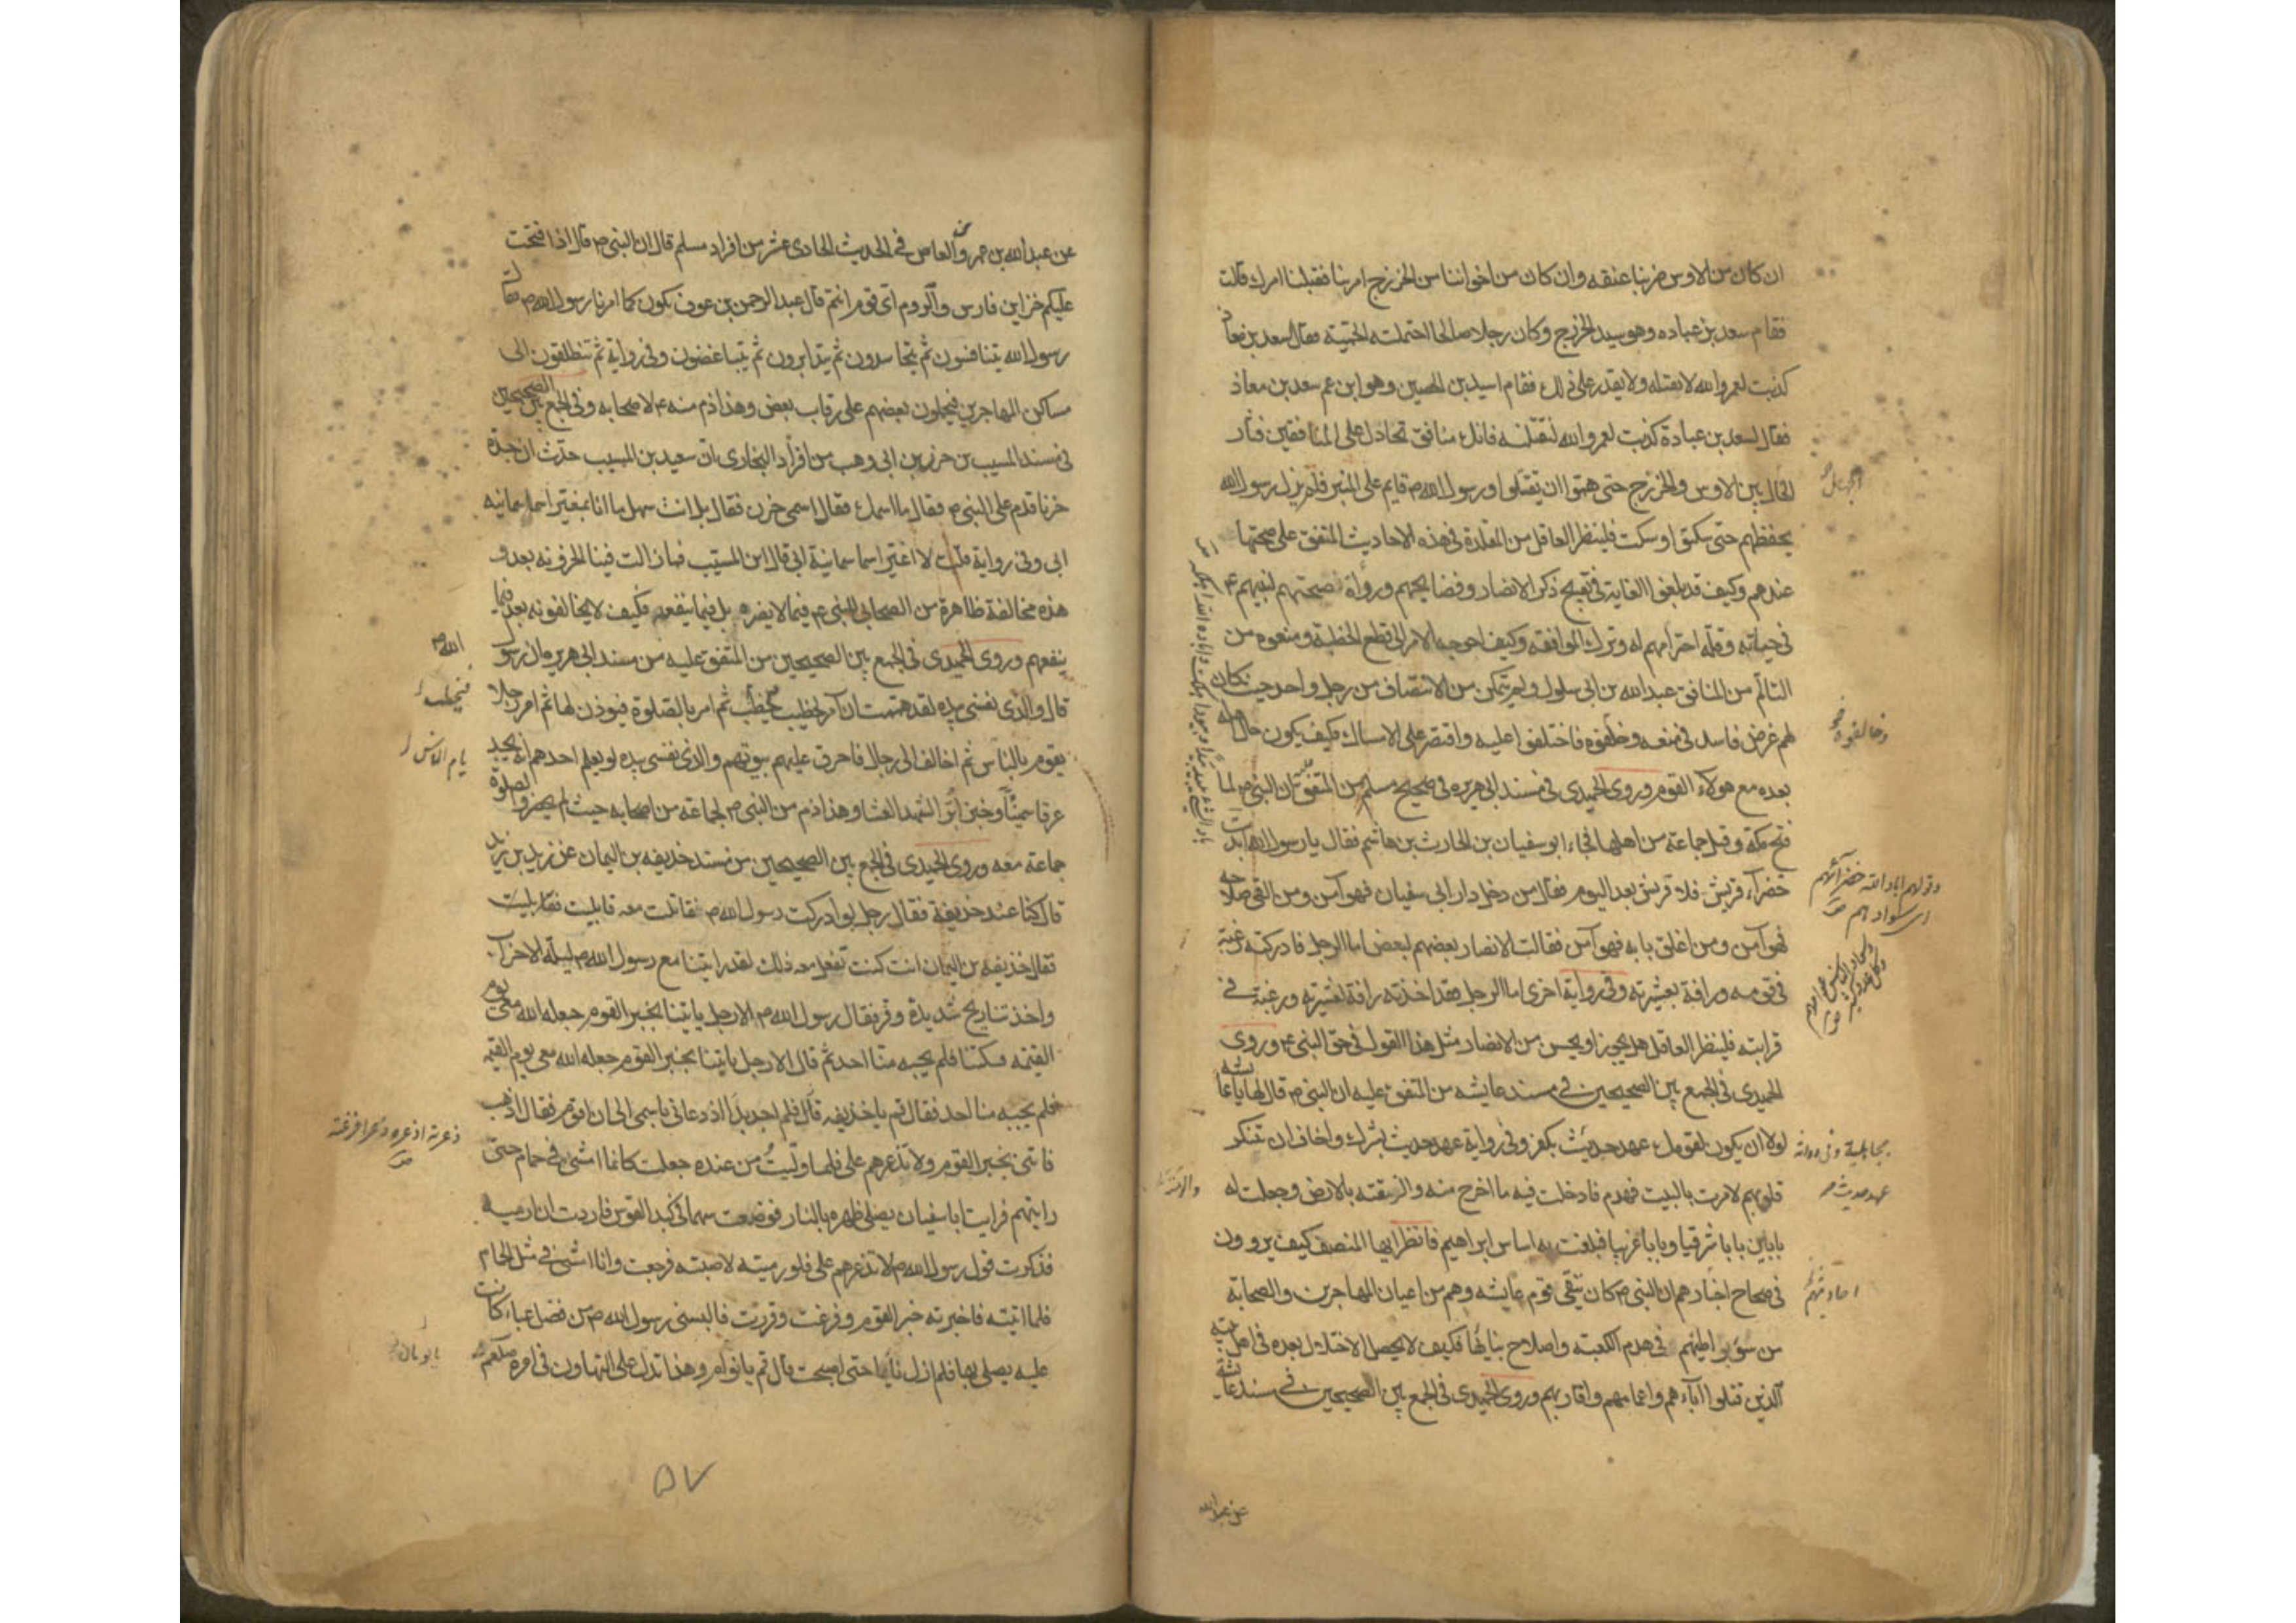 ان كان من الاوس ضربنا عنقه وان كان من اخواننا من الخزرج امرتنا فقبلنا امرك قالت
فقام سعد بن عباده وهو سيد الخزرج وكان رجلا صالحا احتملته الحمية فقال لسعد بن معاذ
كذبت لعمر والله لا تقتله ولا تقدر على ذلك فقام اسيد بن الحصين وهو ابن عم سعد بن معاذ
فقال لسعد بن عبادة كذبت لعمر والله لنقتلنه فانك منافق تجادل على المنافقين فثار
الحال بين الاوس والخزرج حتى هموا ان يقتتلوا ورسول الله ص قايم على المنبر فلم يزل رسول الله
يحفظهم حتى سكتوا وسكت فلينظر العاقل من المقلدة في هذه الاحاديث المتفق على صحتها
عندهم وكيف قد بلغوا الغاية في تقبيح ذكر الانصار وفضايحهم ورداة صحبتهم لنبيهم ع
في حياته وقلة احترامهم له وترك الموافقه وكيف احوجه الامر الى قطع الخطبة ومنعوه من
التالم من المنافق عبد الله بن ابي سلول ولم يتمكن من الانتصاف من رجل واحد حيث كان
لهم غرض فاسد في منعه وخالفوه فاختلفوا عليه واقتصر على الامساك فكيف يكون حال اهله
بعده مع هولاء القوم وروى الحميدي في مسند ابي هريره في صحيح مسلم من المتفق عليه ان النبي ص لما
فتح مكة وقتل جماعة من اهلها فجاء ابو سفيان بن الحارث بن هاشم فقال يا رسول الله ابيدت
خضرآء قريش فلا قريش بعد اليوم فقال من دخل دار ابي سفيان فهو آمن ومن القى سلاحه
فهو آمن ومن اغلق بابه فهو آمن فقالت الانصار بعضهم لبعض اما الرجل فادركته رغبة
في قومه ورافة بعشيرته وفي رواية اخرى اما الرجل فقد اخذته رافة لعشيرته ورغبة في
قرابته فلينظر العاقل هل يجوز او يحسن من الانصار مثل هذا القول في حق النبي ع وروى
الحميدي في الجمع بين الصحيحين في مسند عايشه من المتفق عليه ان النبي ص قال لها يا عايشه
لولا ان يكون لقومك عهد حديث بكفر وفي رواية عهد حديث بشرك واخاف ان تنكر
قلوبهم لامرت بالبيت فهدم فادخلت فيه ما اخرج منه والزقته بالارض وجعلت له
بابين بابا شرقيا وبابا غربيا فبلغت به اساس ابراهيم فانظر ايها المنصف كيف يروون
في صحاح اخبارهم ان النبي ص كان يتقي قوم عايشه وهم من اعيان المهاجرين والصحابة
من سوء بواطنهم في هدم الكعبة واصلاح بنائها فكيف لا يحصل الاختلال بعده في اهل بيته
الذين قتلوا آباءهم واعمامهم واقاربهم وروى الحميدي في الجمع بين الصحيحين في مسند عايشة
وخالفوه
وقولهم اباد الله خضرآئهم
اى سوادهم
بجاهلية وفي رواية
عهد حديث
والزقته
احاديثهم
عن عبد الله
عن عبد الله بن عمرو بن العاص في الحديث الحادى عشر من افراد مسلم قال ان النبي ص قال اذا فتحت
عليكم خزاين فارس والروم اى قوم انتم قال عبد الرحمن بن عوف نكون كما امرنا رسول الله ص فقال
رسول الله تتنافسون ثم تحاسدون ثم تتدابرون ثم تتباغضون وفي رواية ثم تنطلقون الى
مساكن المهاجرين فيحملون بعضهم على رقاب بعض وهذا ذم منه ع لاصحابه وفي الجمع بين الصحيحين
في مسند المسيب بن حزن بن ابي وهب من افراد البخارى ان سعيد بن المسيب حدث ان جده
حزنا قدم على النبي ص فقال ما اسمك فقال اسمى حزن فقال بل انت سهل ما انا بمغير اسما سمانيه
ابى وفي رواية قلت لا اغير اسما سمانيه ابى قال ابن المسيب فما زالت فينا الحزونه بعد و
هذه مخالفة ظاهرة من الصحابي للنبي ع فيما لا يضره بل فيما ينفعه فكيف لا يخالفونه بعد فيما
ينفعهم وروى الحميدى في الجمع بين الصحيحين من المتفق عليه من مسند ابي هريره ان رسول
قال والذى نفسي بيده لقد هممت ان آمر بحطب يحطب ثم امر بالصلوة فيوذن لها ثم امر رجلا
يقوم بالناس ثم اخالف الى رجال فاحرق عليهم بيوتهم والذى نفسي بيده لو يعلم احدهم انه يجد
عرقا سمينا وخبزا لشهد العشا وهذا ذم من النبي ص لجماعة من اصحابه حيث لم يحضروا لصلوة
جماعة معه وروى الحميدى في الجمع بين الصحيحين من مسند حذيفه بن اليمان عن زيد بن يزيد
قال كنا عند حذيفة فقال رجل لو ادركت رسول الله ص لقاتلت معه فابليت فقال بليت
فقال حذيفه بن اليمان انت كنت تفعل معه ذلك لقد رايتنا مع رسول الله ص ليلة الاحزاب
واخذتنا ريح شديدة وقر فقال رسول الله ص الا رجل ياتينا بخبر القوم جعله الله معى يوم
القيمه فسكتنا فلم يجبه منا احد ثم قال الا رجل ياتينا بخبر القوم جعله الله معى يوم القيمه
فلم يجبه منا احد فقال قم يا حذيفه قال فلم اجد بدا اذ دعاني باسمى الى ان اقوم فقال اذهب
فاتنى بخبر القوم ولا تذعرهم على فلما وليت من عنده جعلت كانما امشى في حمام حتى
رايتهم فرايت ابا سفيان يصلى ظهره بالنار فوضعت سهما في كبد القوس فاردت ان ارميه
فذكرت قول رسول الله ص لا تذعرهم على فلو رميته لاصبته فرجعت وانا امشى في مثل الحمام
فلما اتيته فاخبرته خبر القوم وفرغت وقررت فالبسنى رسول الله ص من فضل عباء كانت
عليه يصلى بها فلم ازل نائما حتى اصبحت قال قم يا نوام وهذا تدل على التهاون في امره
الله ص
فيحطب
يام الناس
ذعرته اذعره ذعرا افزعته
يا نومان
٥٧